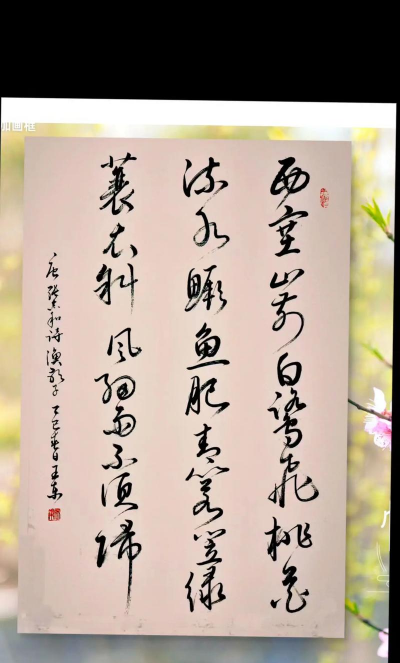 加画框
西塞山前白鹭飛桃花
流水鳜鱼肥青箬笠绿
蓑衣斜風细雨不须归
唐张志和诗渔歌子